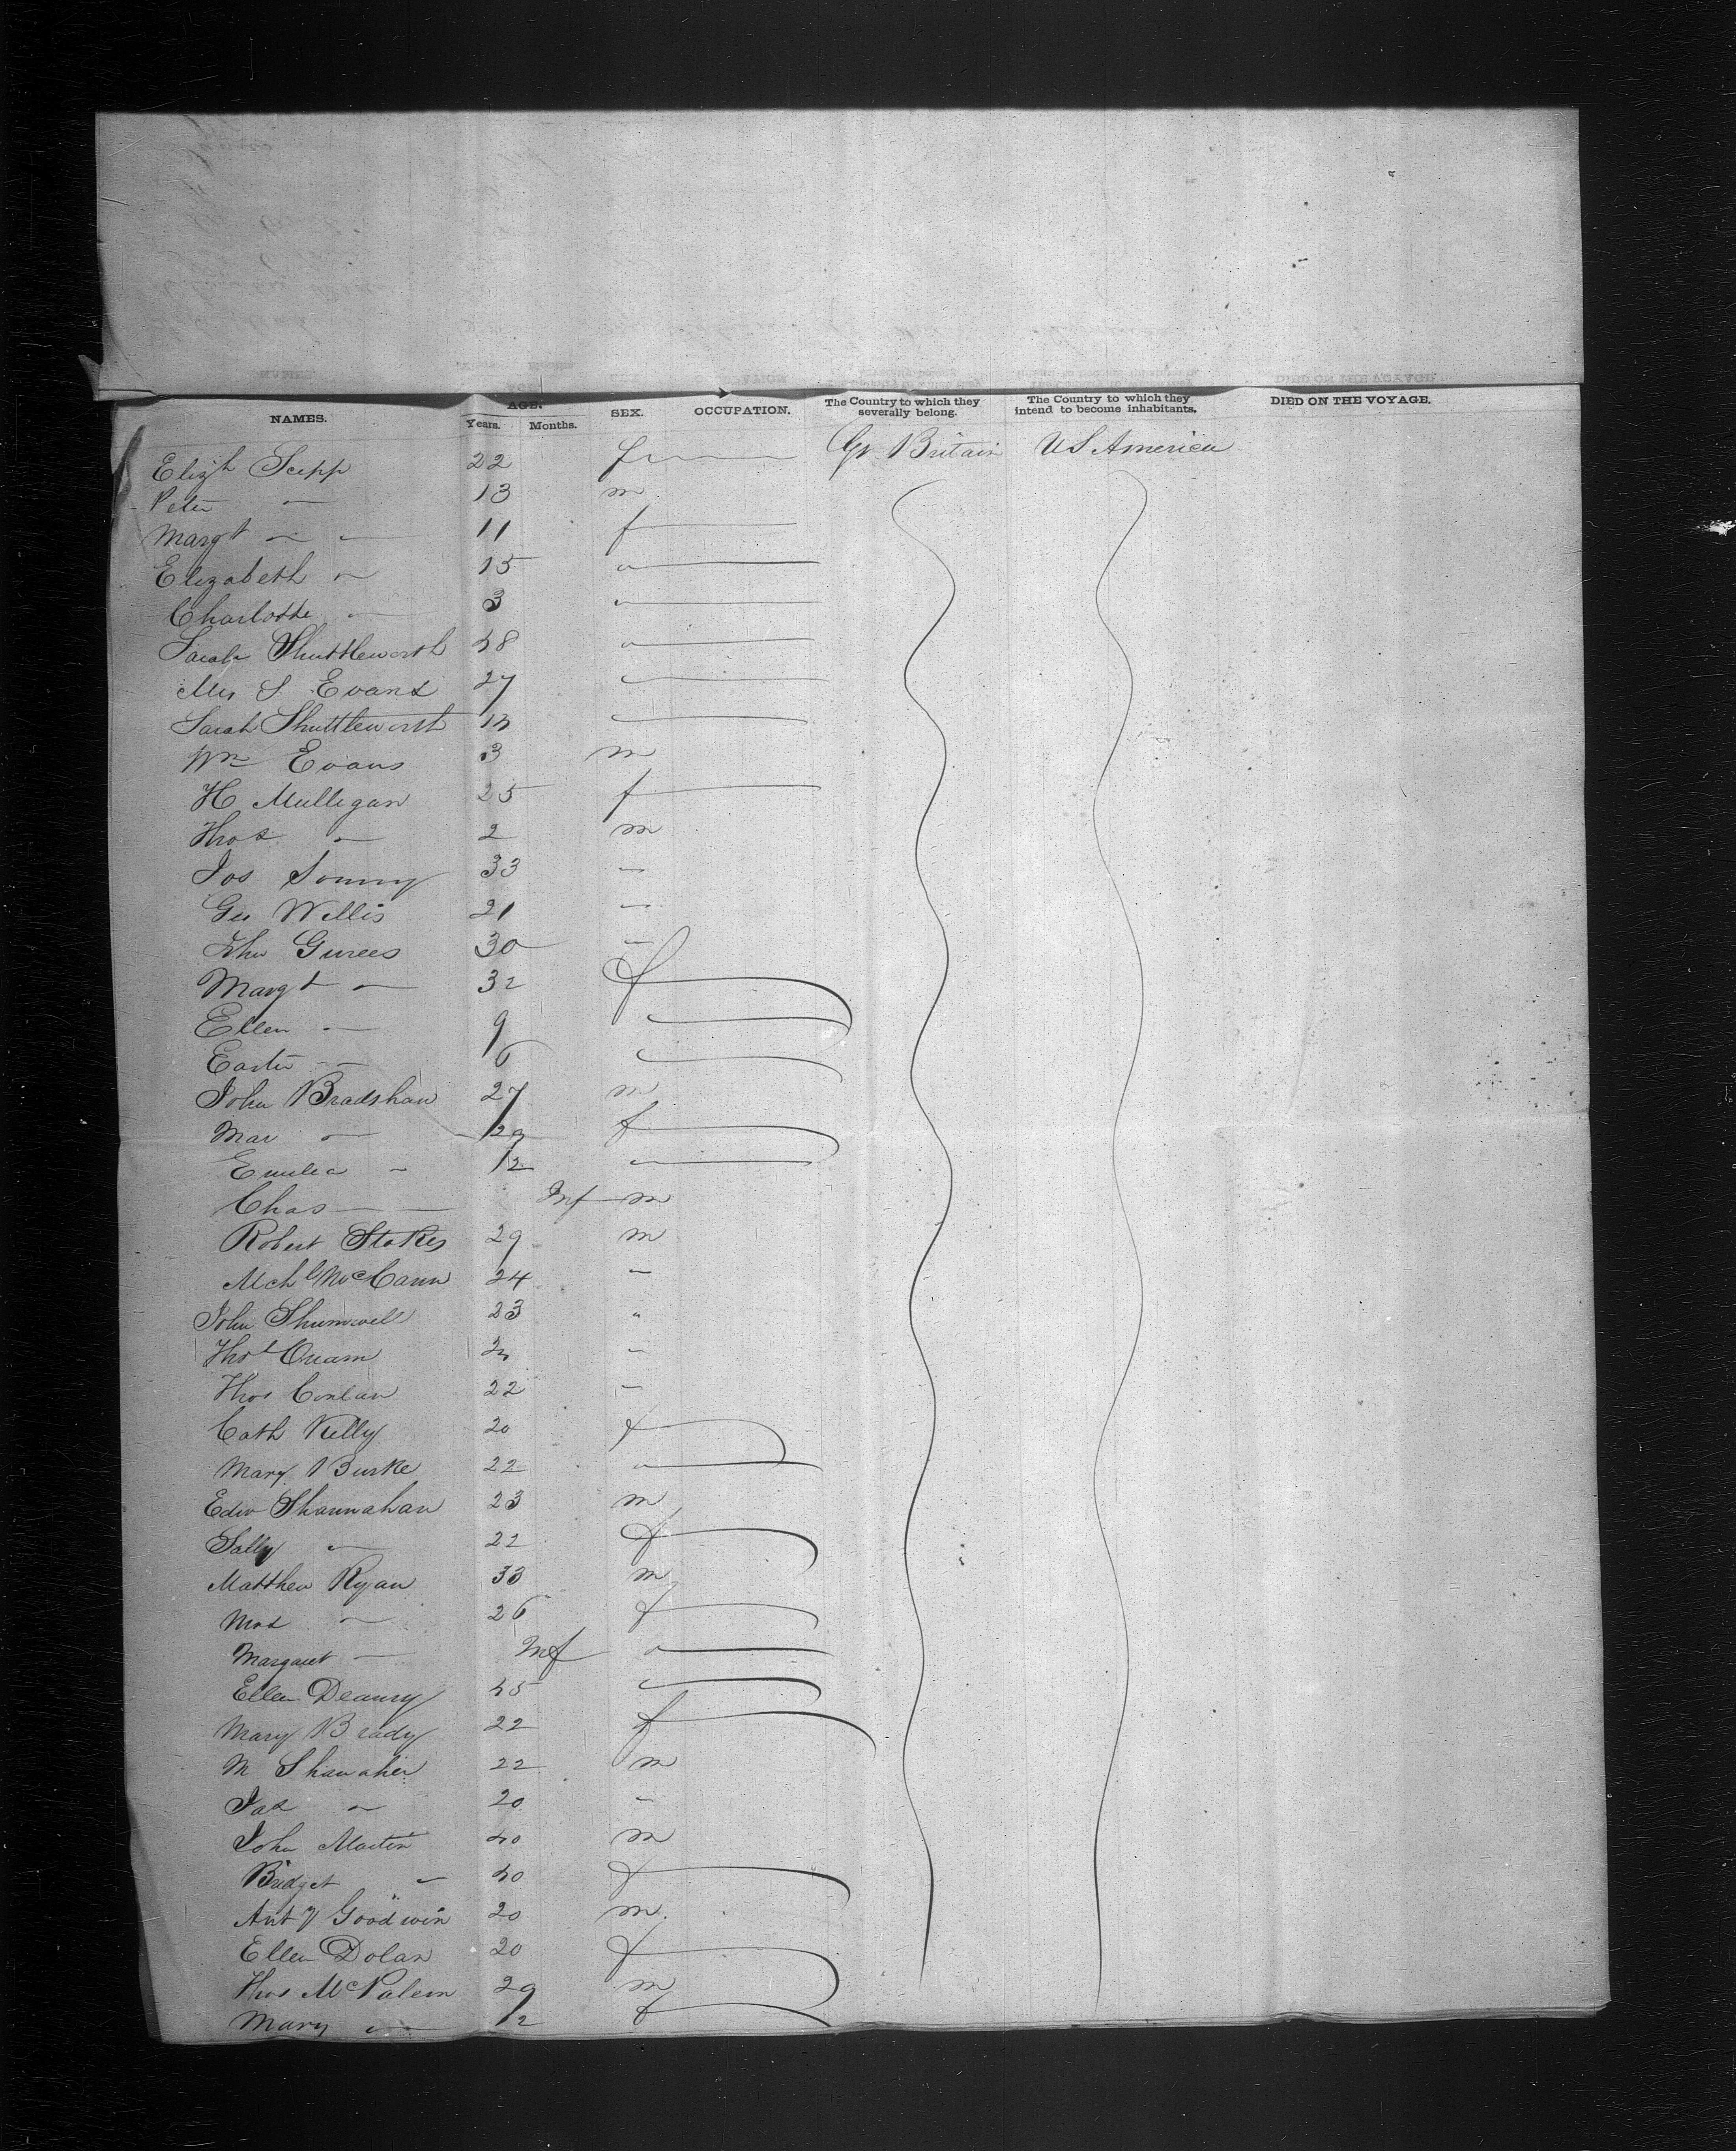 NAMES. AGE. SEX. OCCUPATION. The Country to which they severally belong. The Country to which they intend to become inhabitants. DIED ON THE VOYAGE.
Years. Months.
Elizh Scepp 22 f Gr. Britain US America
Peter — 13 m
Margt — 11 f
Elizabeth — 15 "
Charlotte — 3 "
Sarah Shuttleworth 48 "
Mrs S Evans 27 "
Sarah Shuttleworth 13 "
Wm Evans 3 m
H Mulligan 25 f
Thos — 2 m
Jos 33 —
Geo Willis 21 —
Jhn 30 —
Margt — 32 f
Ellen — 9 "
Easter — 6 "
John Bradshaw 27 m
Mar — 29 f
Emilia — 1/2 "
Chas — Inf m
Robert Stokes 29 m
Mchl McCann 24 —
John 23 "
Thos —
Thos Conlan 22 —
Cath Kelly 20 f
Mary Burke 22 "
Edw Shannahan 23 m
Sally — 22 f
Matthew Ryan 33 m
— 26 f
Margaret — Inf "
Ellen 45 "
Mary Brady 22 f
M 22 m
Jas — 20 —
John Martin 40 m
Bridget — 40 f
Anty Goodwin 20 m
Ellen Dolan 20 f
Thos 29 m
Mary — 1/2 f